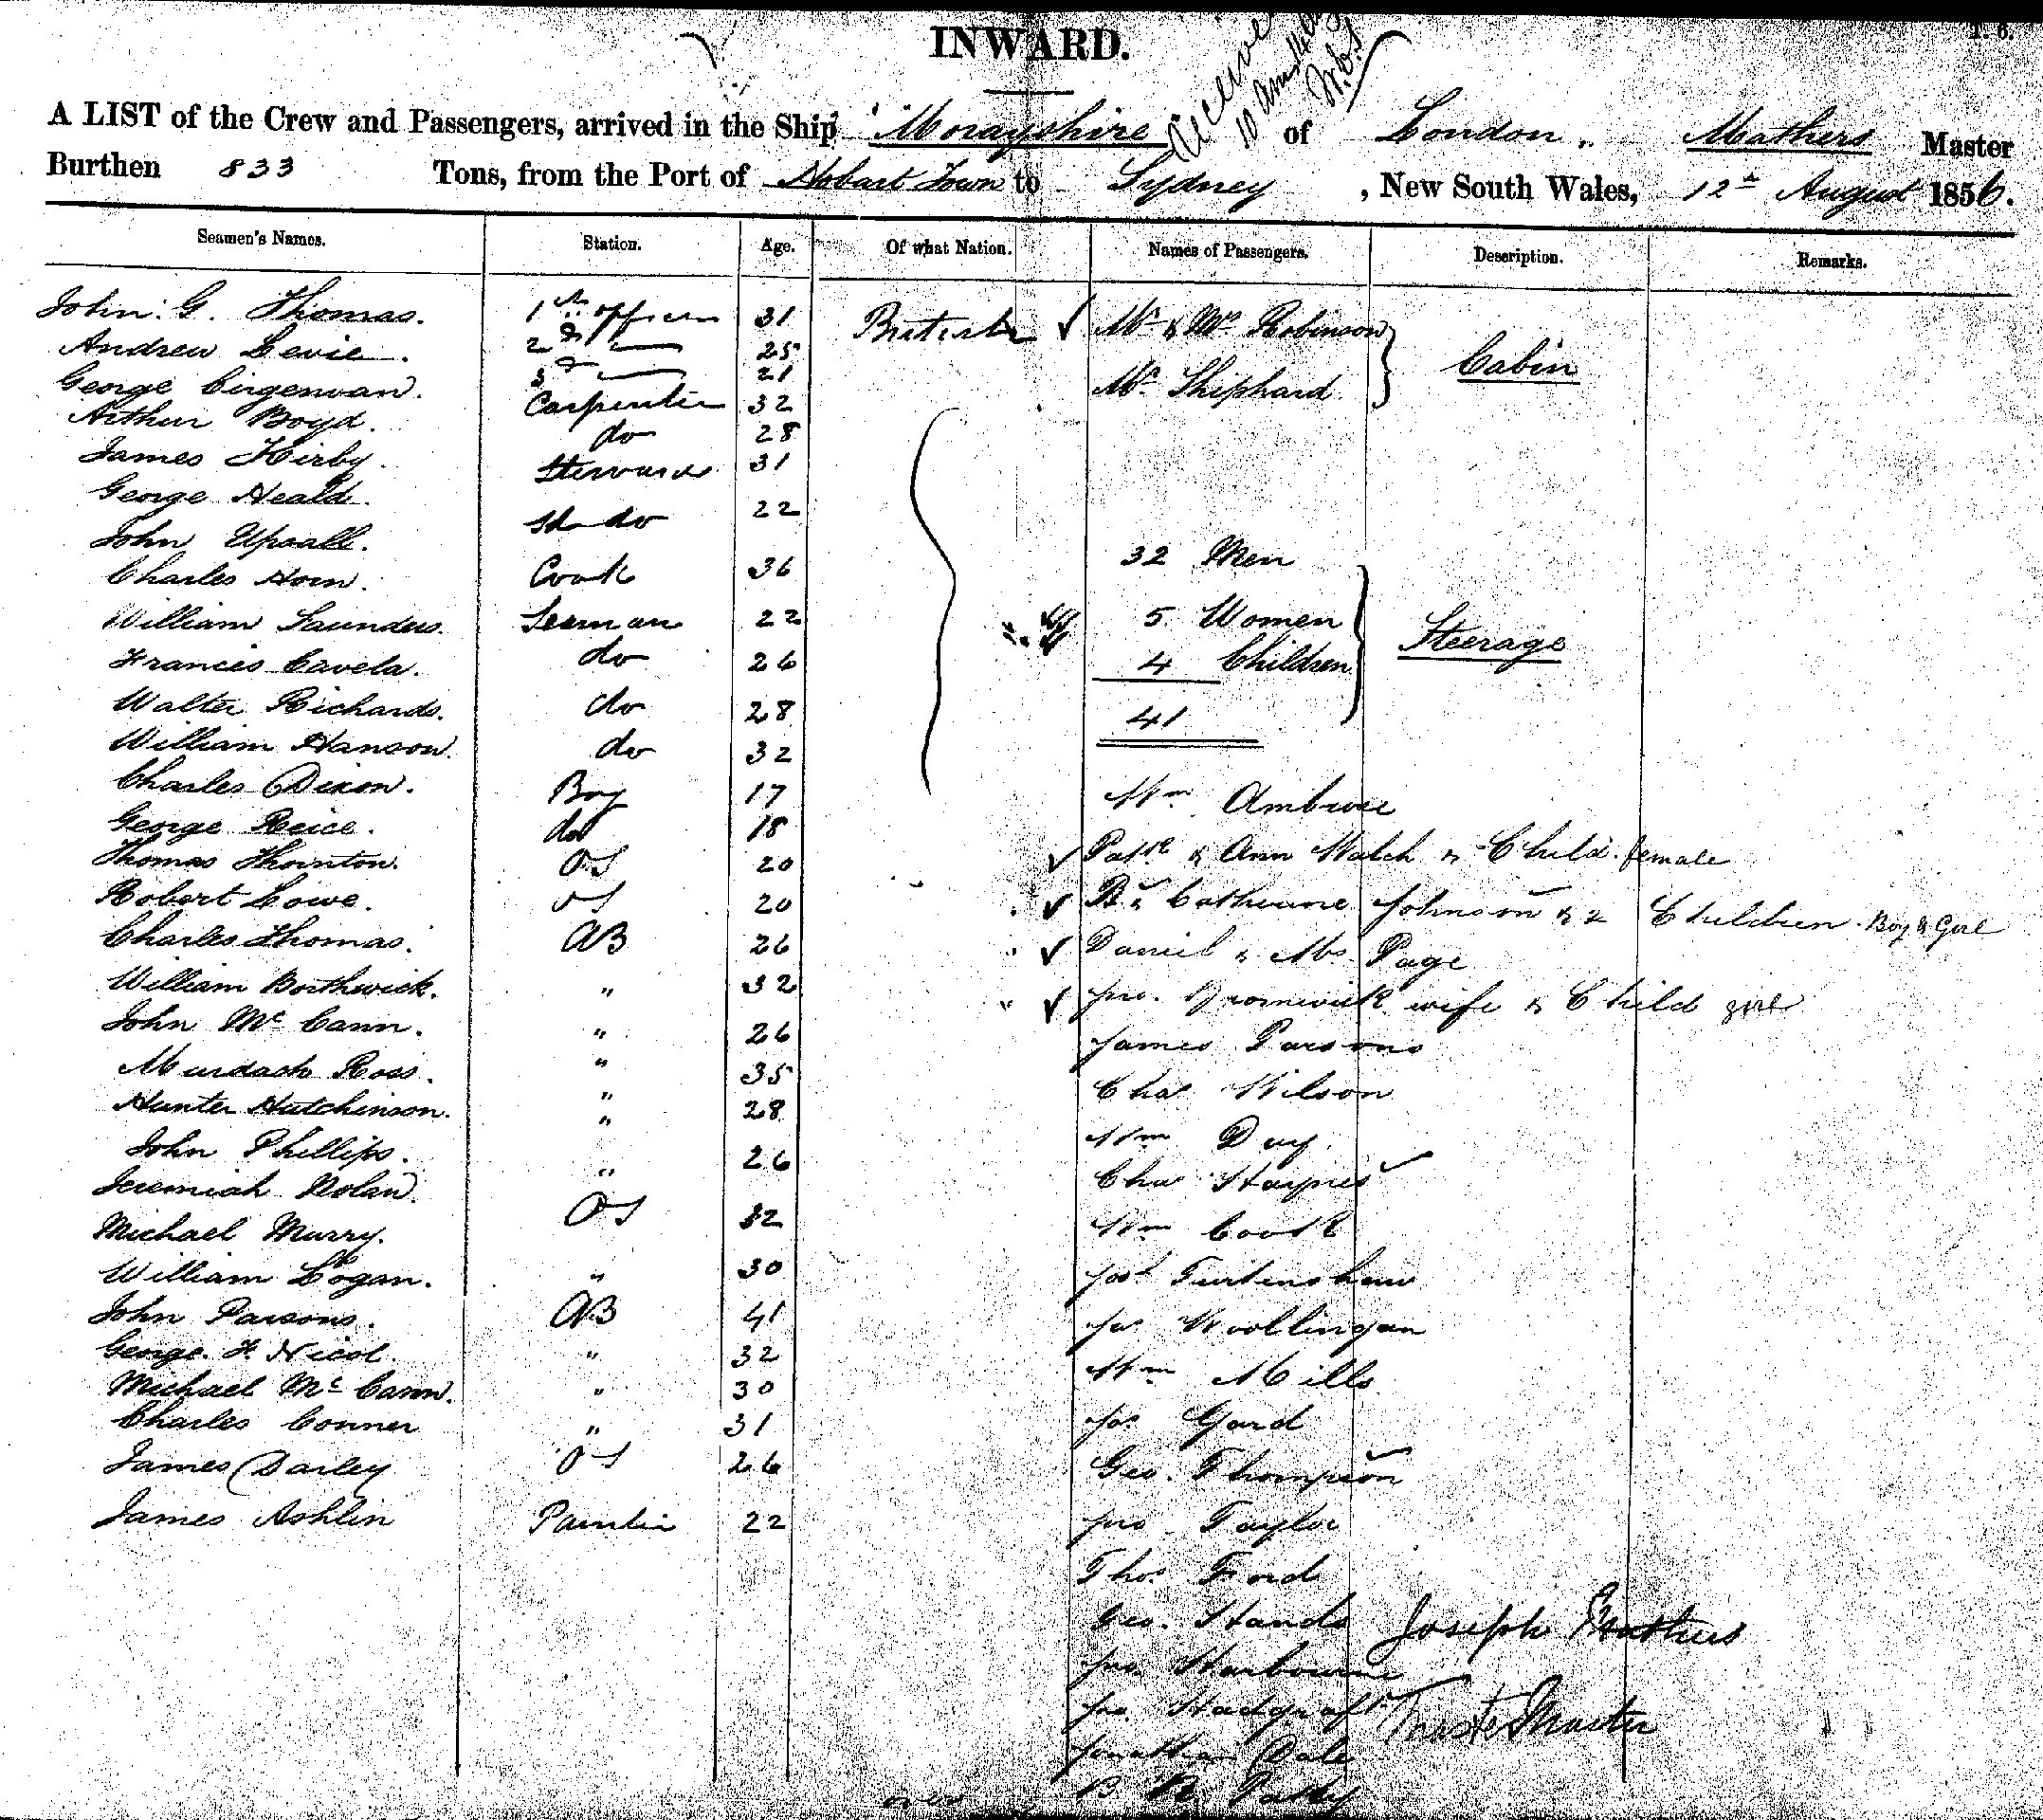 INWARD.
A LIST of the Crew and Passengers, arrived in the Ship "Morayshire" of London, Mathers Master
Burthen 833 Tons, from the Port of Hobart Town to Sydney, New South Wales, 12th August 1856.
Seamen's Names. Station. Age. Of what Nation. Names of Passengers. Description. Remarks.
John. G. Thomas. 1st officer 31 British Mr & Mrs Robinson Cabin
Andrew Levie. 2d 25
George Cirgenwan. 3d 21 Mr. Shiphard
Arthur Boyd. Carpenter 32
James Kirby. do 28
George Heald. Steward 31
John Upsall. do 22
Charles Horn. Cook 36 32 Men
William Saunders. Seaman 22 5 Women Steerage
Francis Cavela. do 26 4 Children
Walter Richards. do 28 41
William Hanson. do 32
Charles Dixon. Boy 17 Wm
George Reice. do 18
Thomas Thornton. OS 20 Patk & Ann Walch & Child. female
Robert Lowe. OS 20 B. & Catherine Johnson & 2 Children. Boy & Girl
Charles Thomas. AB 26 Daniel & Mrs Page
William Borthwick. " 32 Jno. Bromwick wife & Child girl
John McCann. " 26 James Parsons
Murdach Ross. " 35 Chas Wilson
Hunter Hutchinson. " 28 Wm Day
John Phillips. " 26 Chas Haynes
Jeremiah Nolan. "
Michael Murry. OS 32 Wm Cook
William Logan. " 30 Josh
John Parsons. AB 41 Jas
George. F. Nicol. " 32 Wm Mills
Michael McCann. " 30 Jas Gard
Charles Conner " 31
James Darley OS 26 Geo. Thompson
James Ashlin Painter 22 Jno Taylor
Thos Ford
Geo. Hands Joseph Mathers
Jno. Harbourne
Jno. Hadgraft Master
Jonathan Dale
over